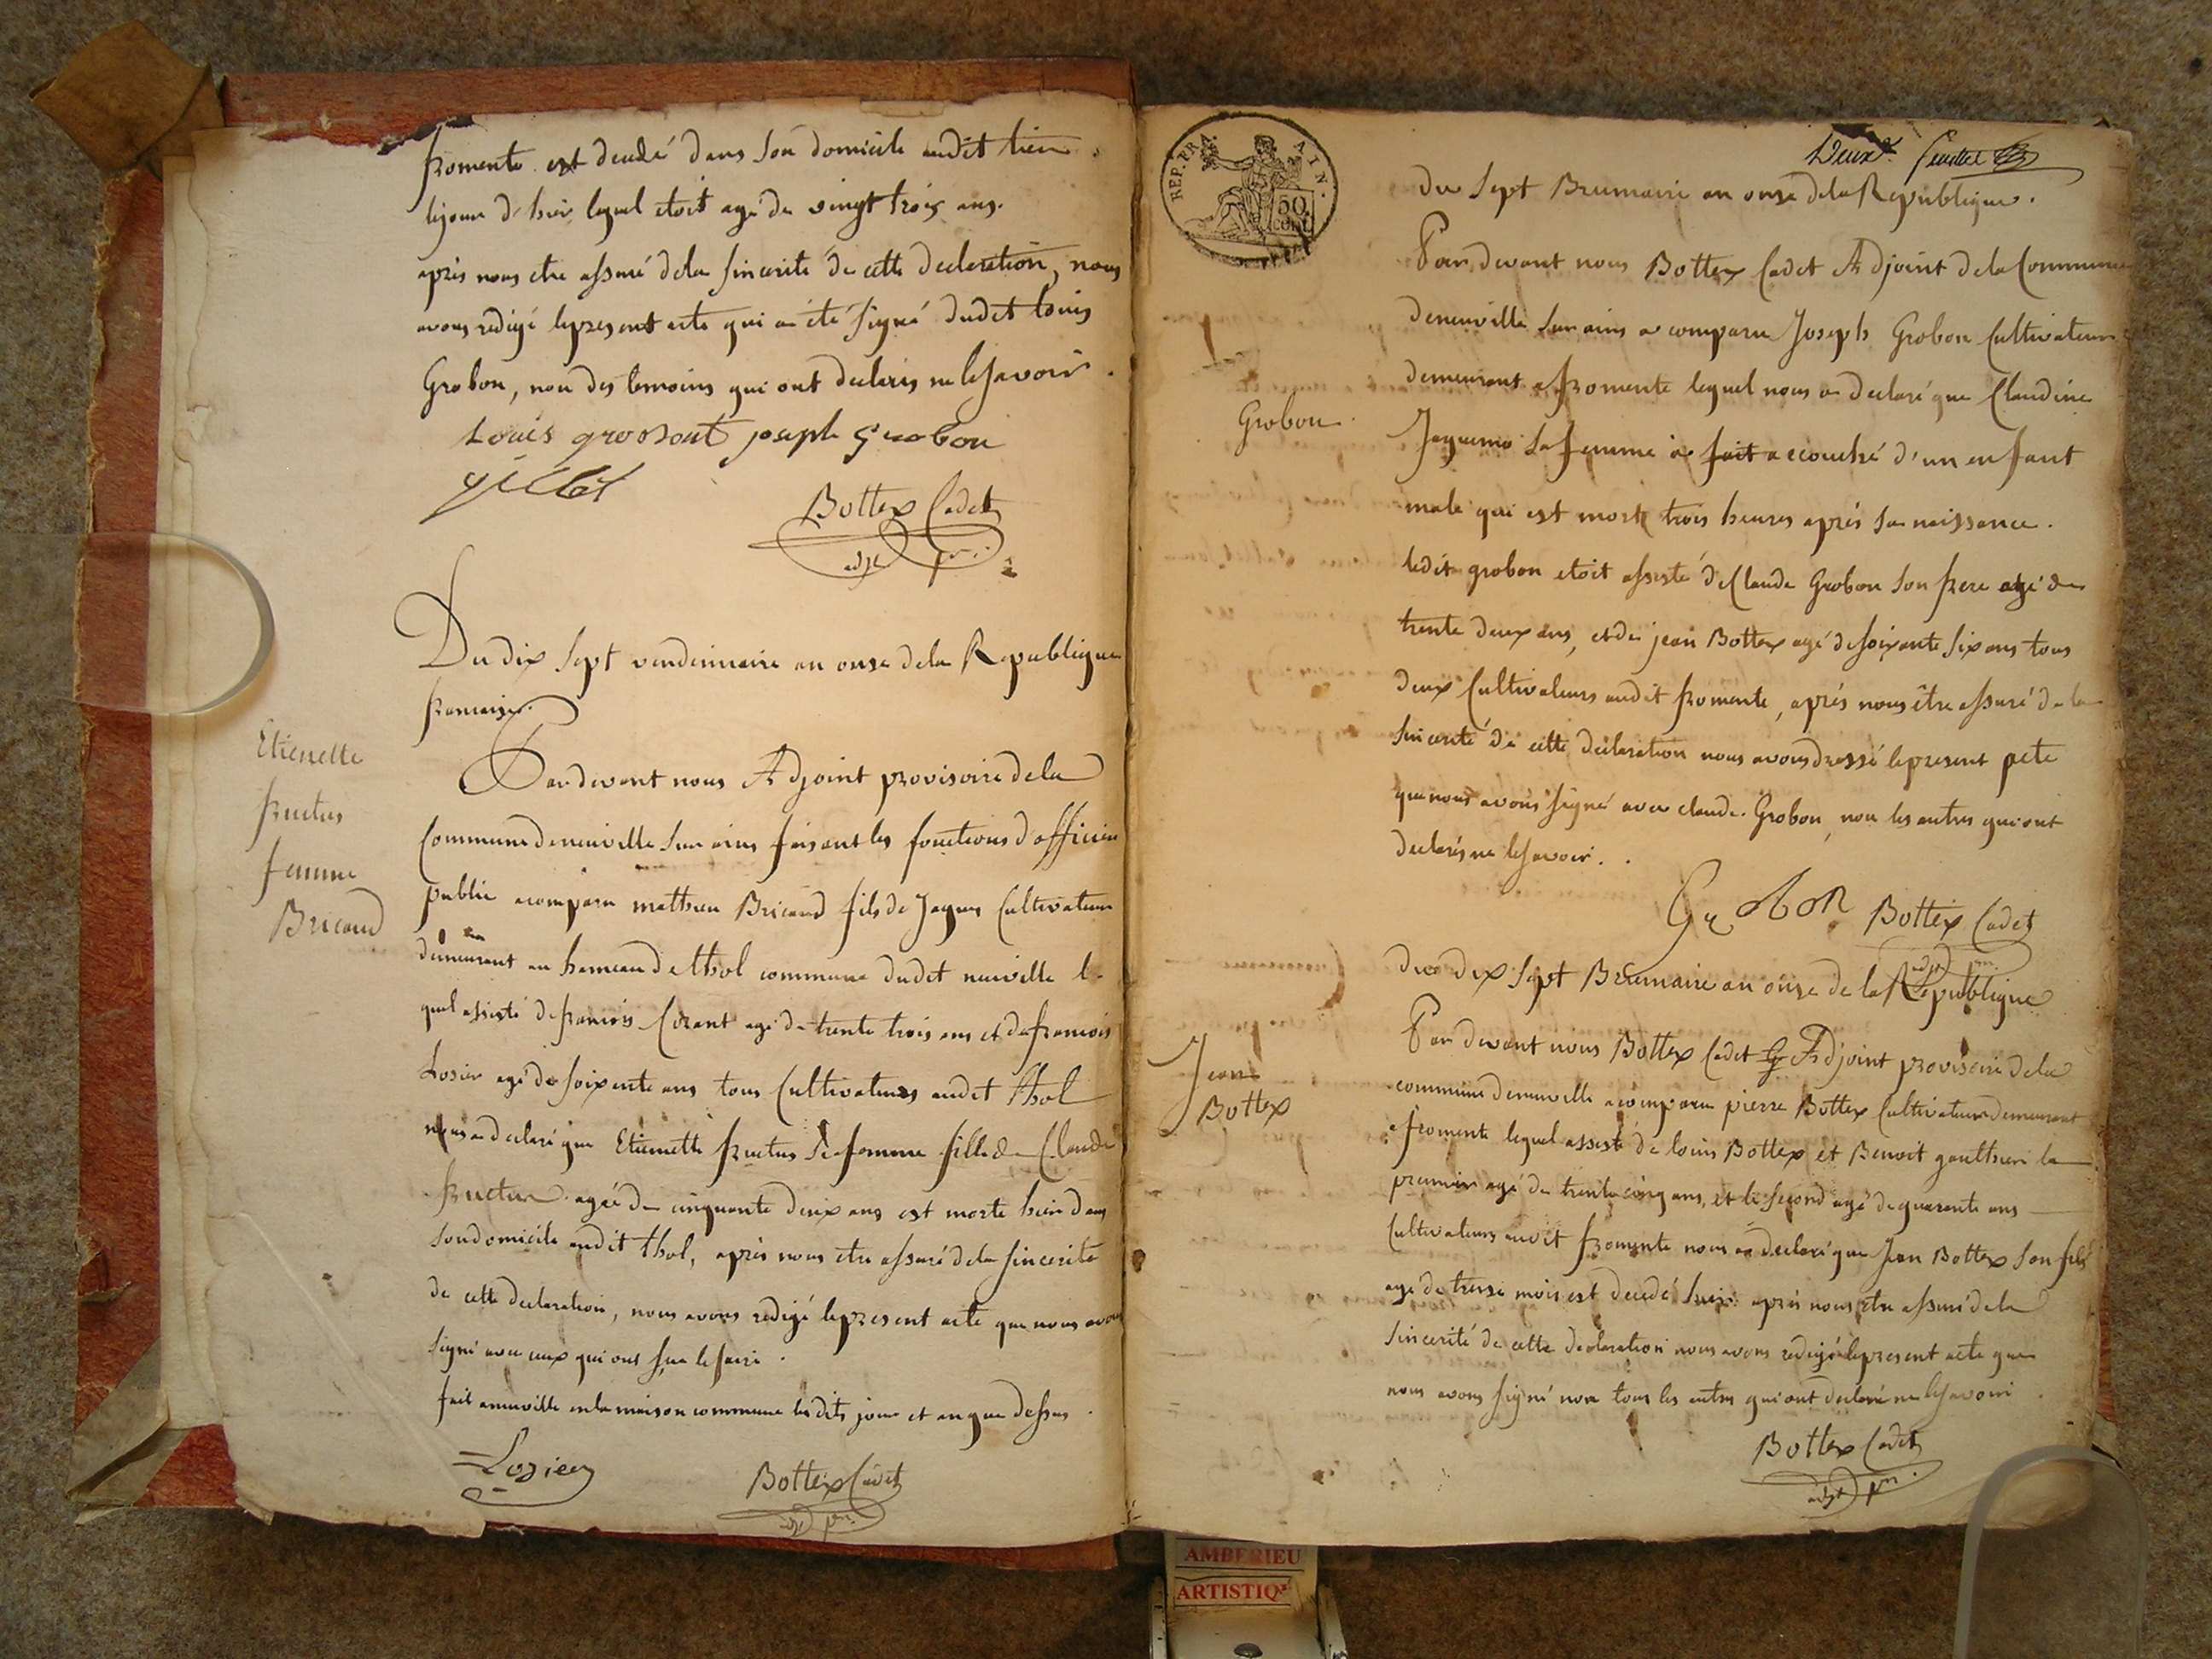 fromente est decedé dans son domicile audit lieu
lejour d'hier lequel etoit agé de vingt trois ans.
après nous etre assuré dela sincerité de cette declaration, nous
avons redigé lepresent acte qui a été signé dudit louis
Grobon, non des temoins qui ont declarés ne lesavoir.
Louis joseph Grobon
Bottex Cadet
adjt pre.
Du dix sept vendemiaire an onse dela Republique
francaise.
Par devant nous Adjoint provisoire dela
Commune deneuville sur ains faisant les fonctions d'officier
public acomparu mathieu Bricaud fils de Jaques Cultivateur
demeurant au hameau de thol commune dudit neuville le
quel assisté de francois Corant agé de trente trois ans et de francois
Losier agé de soixante ans tous Cultivateurs audit thol
nous a declaré que Etiennette fructus sa femme fille de Claude
fructus agée de cinquante deux ans est morte hier dans
son domicile audit thol, après nous etre assuré dela sincerité
de cette declaration, nous avons redigé lepresent acte que nous avons
signé avec ceux qui ont su le faire.
fait aneuville enla maison commune lesdits jour et an que dessus.
Losier Bottex Cadet
adjt pre.
Etienette
fructus
femme
Bricaud
REP. FRA. AIN.
50
CENT.
Deux feuillet
du sept Brumaire an onse dela Republique.
Par devant nous Bottex Cadet Adjoint dela Commune
deneuville sur ains a comparu Joseph Grobon Cultivateur
demeurant a fromente lequel nous a declaré que Claudine
Jaquemo sa femme a fait accouché d'un enfant
male qui est mort trois heures après sa naissance.
ledit grobon etoit assisté de Claude Grobon son frere agé de
trente deux ans, et de jean Bottex agé de soixante six ans tous
deux Cultivateurs audit fromente, après nous être assuré de la
sincerité de cette declaration nous avons dressé lepresent acte
que nous avons signé avec claude Grobon, non les autres qui ont
declarés ne lesavoir.
Grobon
Grobon Bottex Cadet
adjt pre.
du dix sept Brumaire an onse de la Republique
Par devant nous Bottex Cadet Adjoint provisoire dela
commune deneuville a comparu pierre Bottex Cultivateur demeurant
a fromente lequel assisté de louis Bottex et Benoit gaulthier le
premier agé de trente cinq ans, et le second agé de quarante ans
Cultivateurs audit fromente nous a declaré que Jean Bottex son fils
agé de treise mois est decedé hier après nous etre assuré dela
sincerité de cette declaration nous avons redigé lepresent acte que
nous avons signé non tous les autres qui ont declaré ne lesavoir.
Jean
Bottex
Bottex Cadet
adjt pre.
AMBERIEU
ARTISTIQ